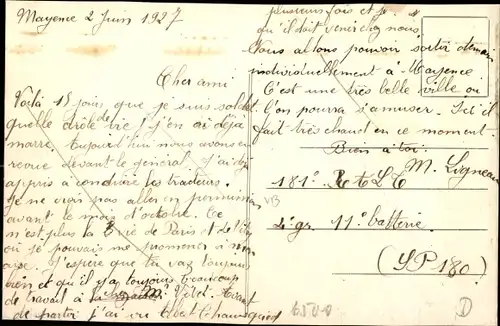 Mayence 2 Juin 1927
Cher ami
Voilà 15 jours que je suis soldat
quelle drôle de vie j'en ai déjà
marre. Aujourd'hui nous avons eu
revue devant le général. J'ai déjà
appris à conduire les tracteurs.
Je ne crois pas aller en permission
avant le mois d'octobre. Ce
n'est plus la vie de Paris et de
où je pouvais me promener à mon
J'espère que tu vas toujours
bien et qu'il y a toujours beaucoup
de travail à la Avant
de partir j'ai vu
plusieurs fois et je
qu'il doit venir chez nous.
Nous allons pouvoir sortir demain
individuellement à Mayence
C'est une très belle ville où
l'on pourra s'amuser. Ici il
fait très chaud en ce moment.
Bien à toi:
M. Ligneau
181°
VB
11° batterie
(SP 180)
6500
D